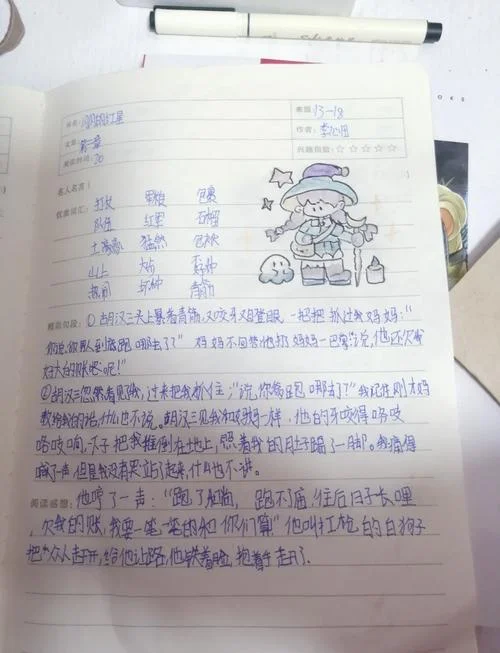 书名: 闪闪的红星
页码: 13-18
文章: 第一章
作者: 李心田
阅读时间: 30
兴趣指数: ☆☆☆☆☆
名人名言:
优美词汇: 打仗 包裹
队伍 红军
土豪 猛然
山上
热闹 青筋
精彩句段: ①胡汉三头上暴着青筋,又咬牙又瞪眼,一把把抓过我妈妈:“
你说,你男人到底跑哪去了?”妈妈不回答他,打妈妈一巴掌说,他还欠我
好大的账呢!”
②胡汉三忽然看见我,过来把我抓住:“说,你爸跑哪去了?”我记住刚才妈
教给我的话,什么也不说。胡汉三见我和妈妈一样,他的牙咬得咯吱
咯吱响,一下子把我推倒在地上,照着我的肚子踢了一脚。我痛得
喊了一声,但是我没有哭,站了起来,什么也不讲。
阅读感想: 他哼了一声:“跑了和尚,跑不了庙,往后日子长哩
,欠我的账,我要一笔一笔的和你们算”他叫扛枪的白狗子
把众人赶开,给他让路,他铁着脸,抱着手走了.